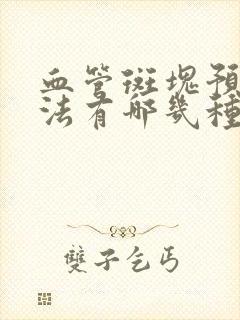 血管斑塊預
法有哪幾種
雙子乞丐